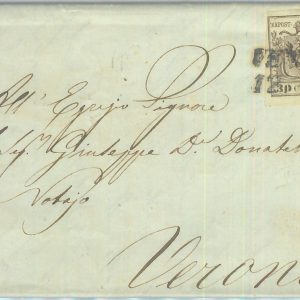 KAIS.POST
VE
12
30 C
All' Egregio Signore
Sig.r Giuseppe Dr. Donate
Notajo
Verona